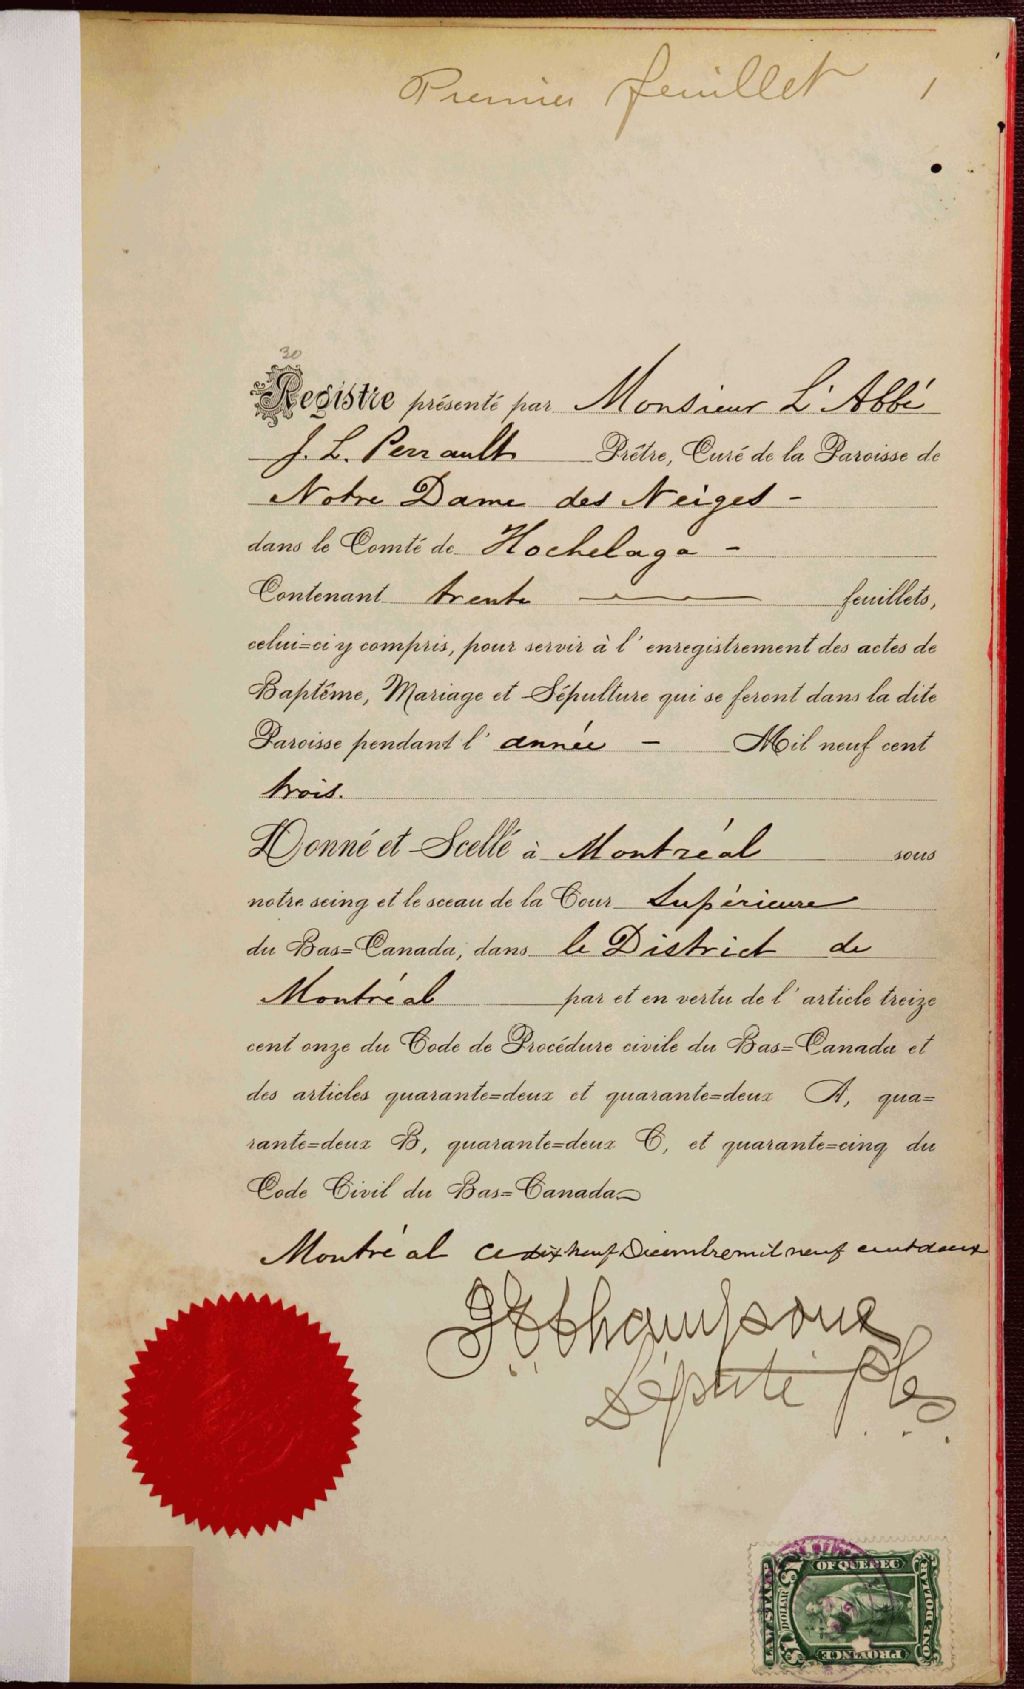 Premier feuillet 1
30
Registre présenté par Monsieur L'Abbé
J. L. Perrault Prêtre, Curé de la Paroisse de
Notre Dame des Neiges -
dans le Comté de Hochelaga -
Contenant trente feuillets,
celui=ci y compris, pour servir à l'enregistrement des actes de
Baptême, Mariage et Sépulture qui se feront dans la dite
Paroisse pendant l'année - Mil neuf cent
trois.
Donné et Scellé à Montréal sous
notre seing et le sceau de la Cour Supérieure
du Bas=Canada, dans le District de
Montréal par et en vertu de l'article treize
cent onze du Code de Procédure civile du Bas=Canada et
des articles quarante=deux et quarante=deux A, qua=
rante=deux B, quarante=deux C, et quarante=cinq du
Code Civil du Bas=Canada
Montréal ce dix neuf Décembre mil neuf cent deux
Député
OF QUEBEC
DOLLAR
ONE DOLLAR
PROVINCE